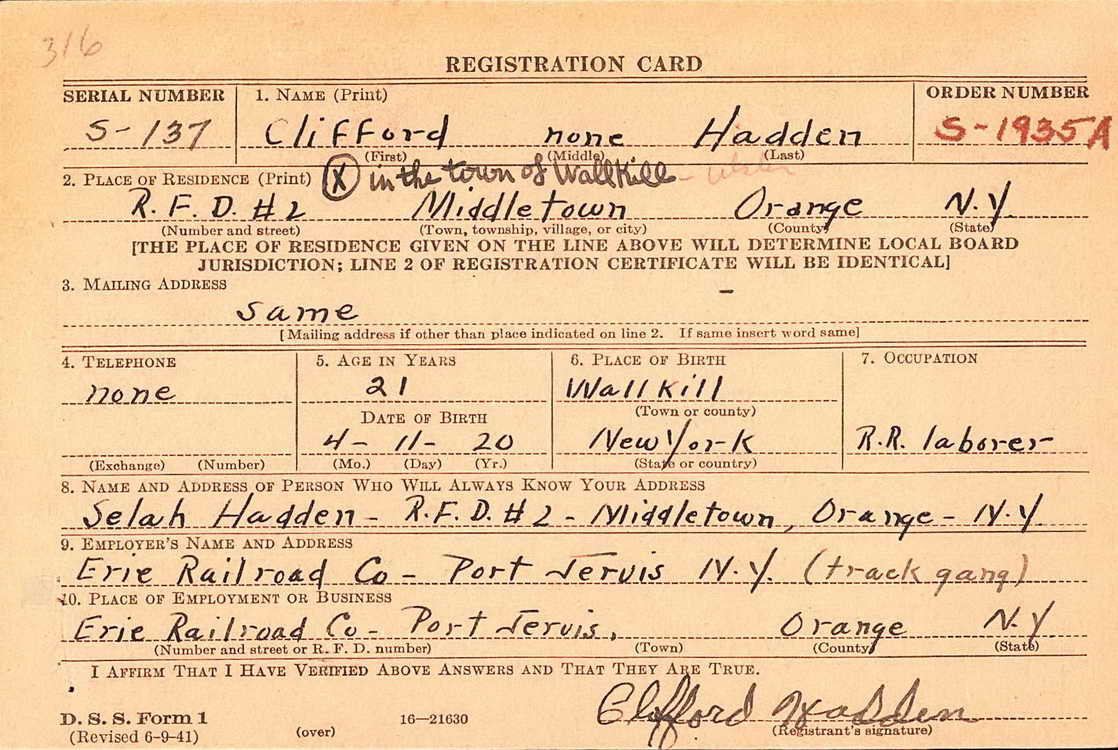 316
REGISTRATION CARD
SERIAL NUMBER 1. NAME (Print) ORDER NUMBER
S-137 Clifford none Hadden S-1935A
(First) (Middle) (Last)
2. PLACE OF RESIDENCE (Print) (X) in the town of Wallkill -
R.F.D. #2 Middletown Orange N.Y.
(Number and street) (Town, township, village, or city) (County) (State)
[THE PLACE OF RESIDENCE GIVEN ON THE LINE ABOVE WILL DETERMINE LOCAL BOARD
JURISDICTION; LINE 2 OF REGISTRATION CERTIFICATE WILL BE IDENTICAL]
3. MAILING ADDRESS
same
[Mailing address if other than place indicated on line 2. If same insert word same]
4. TELEPHONE 5. AGE IN YEARS 6. PLACE OF BIRTH 7. OCCUPATION
none 21 Wallkill
DATE OF BIRTH (Town or county)
4- 11- 20 New York R.R. laborer
(Exchange) (Number) (Mo.) (Day) (Yr.) (State or country)
8. NAME AND ADDRESS OF PERSON WHO WILL ALWAYS KNOW YOUR ADDRESS
Selah Hadden - R.F.D. #2 - Middletown, Orange - N.Y.
9. EMPLOYER'S NAME AND ADDRESS
Erie Railroad Co - Port Jervis N.Y. (track gang)
10. PLACE OF EMPLOYMENT OR BUSINESS
Erie Railroad Co - Port Jervis, Orange N.Y
(Number and street or R. F. D. number) (Town) (County) (State)
I AFFIRM THAT I HAVE VERIFIED ABOVE ANSWERS AND THAT THEY ARE TRUE.
D. S. S. Form 1 16—21630 Clifford Hadden
(Revised 6-9-41) (over) (Registrant's signature)